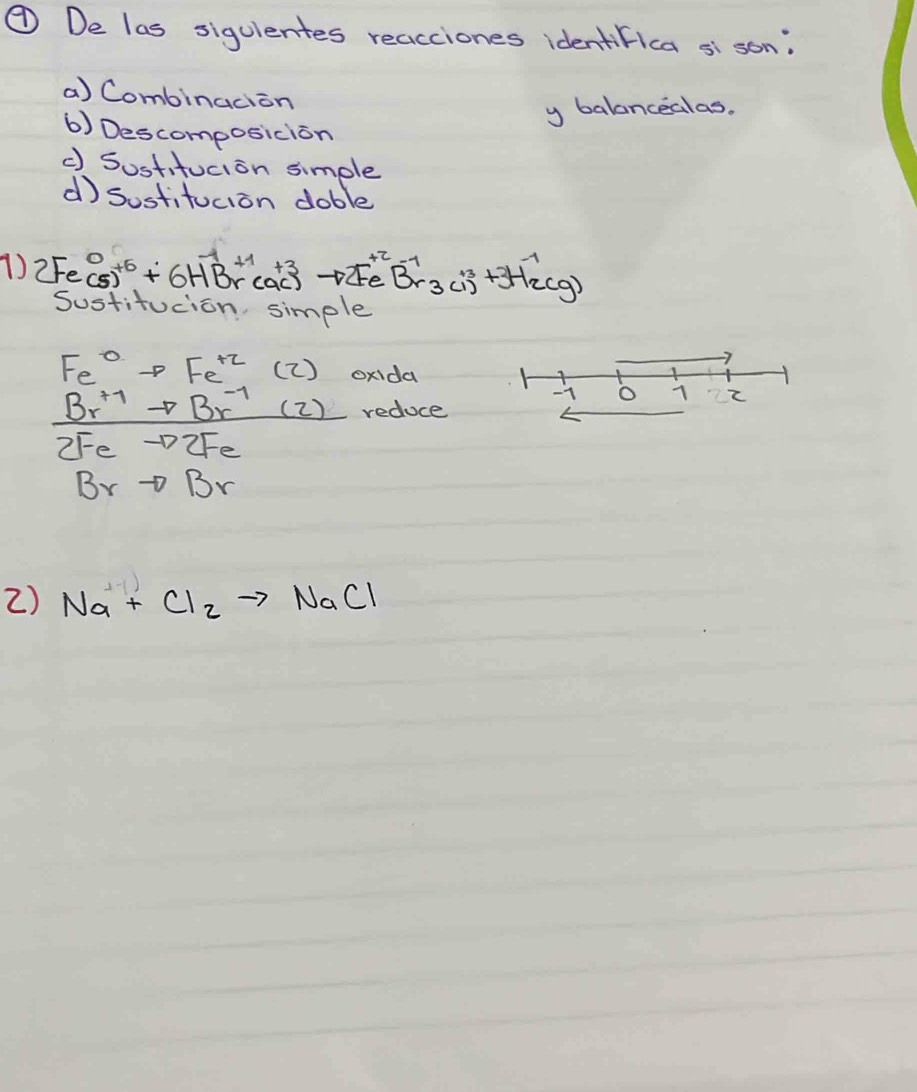 ① De las siguientes reacciones identifica si son:
a) Combinación
y balancéalas.
b) Descomposición
c) Sustitución simple
d) Sustitución doble
1) 2Fe⁰(s) + 6HBr(ac) → 2FeBr₃ + 3H₂(g)
Sustitución simple
Fe⁰ → Fe⁺² (2) oxida
Br⁺¹ → Br⁻¹ (2) reduce
-1 0 1 2
2Fe → 2Fe
Br → Br
2) Na + Cl₂ → NaCl